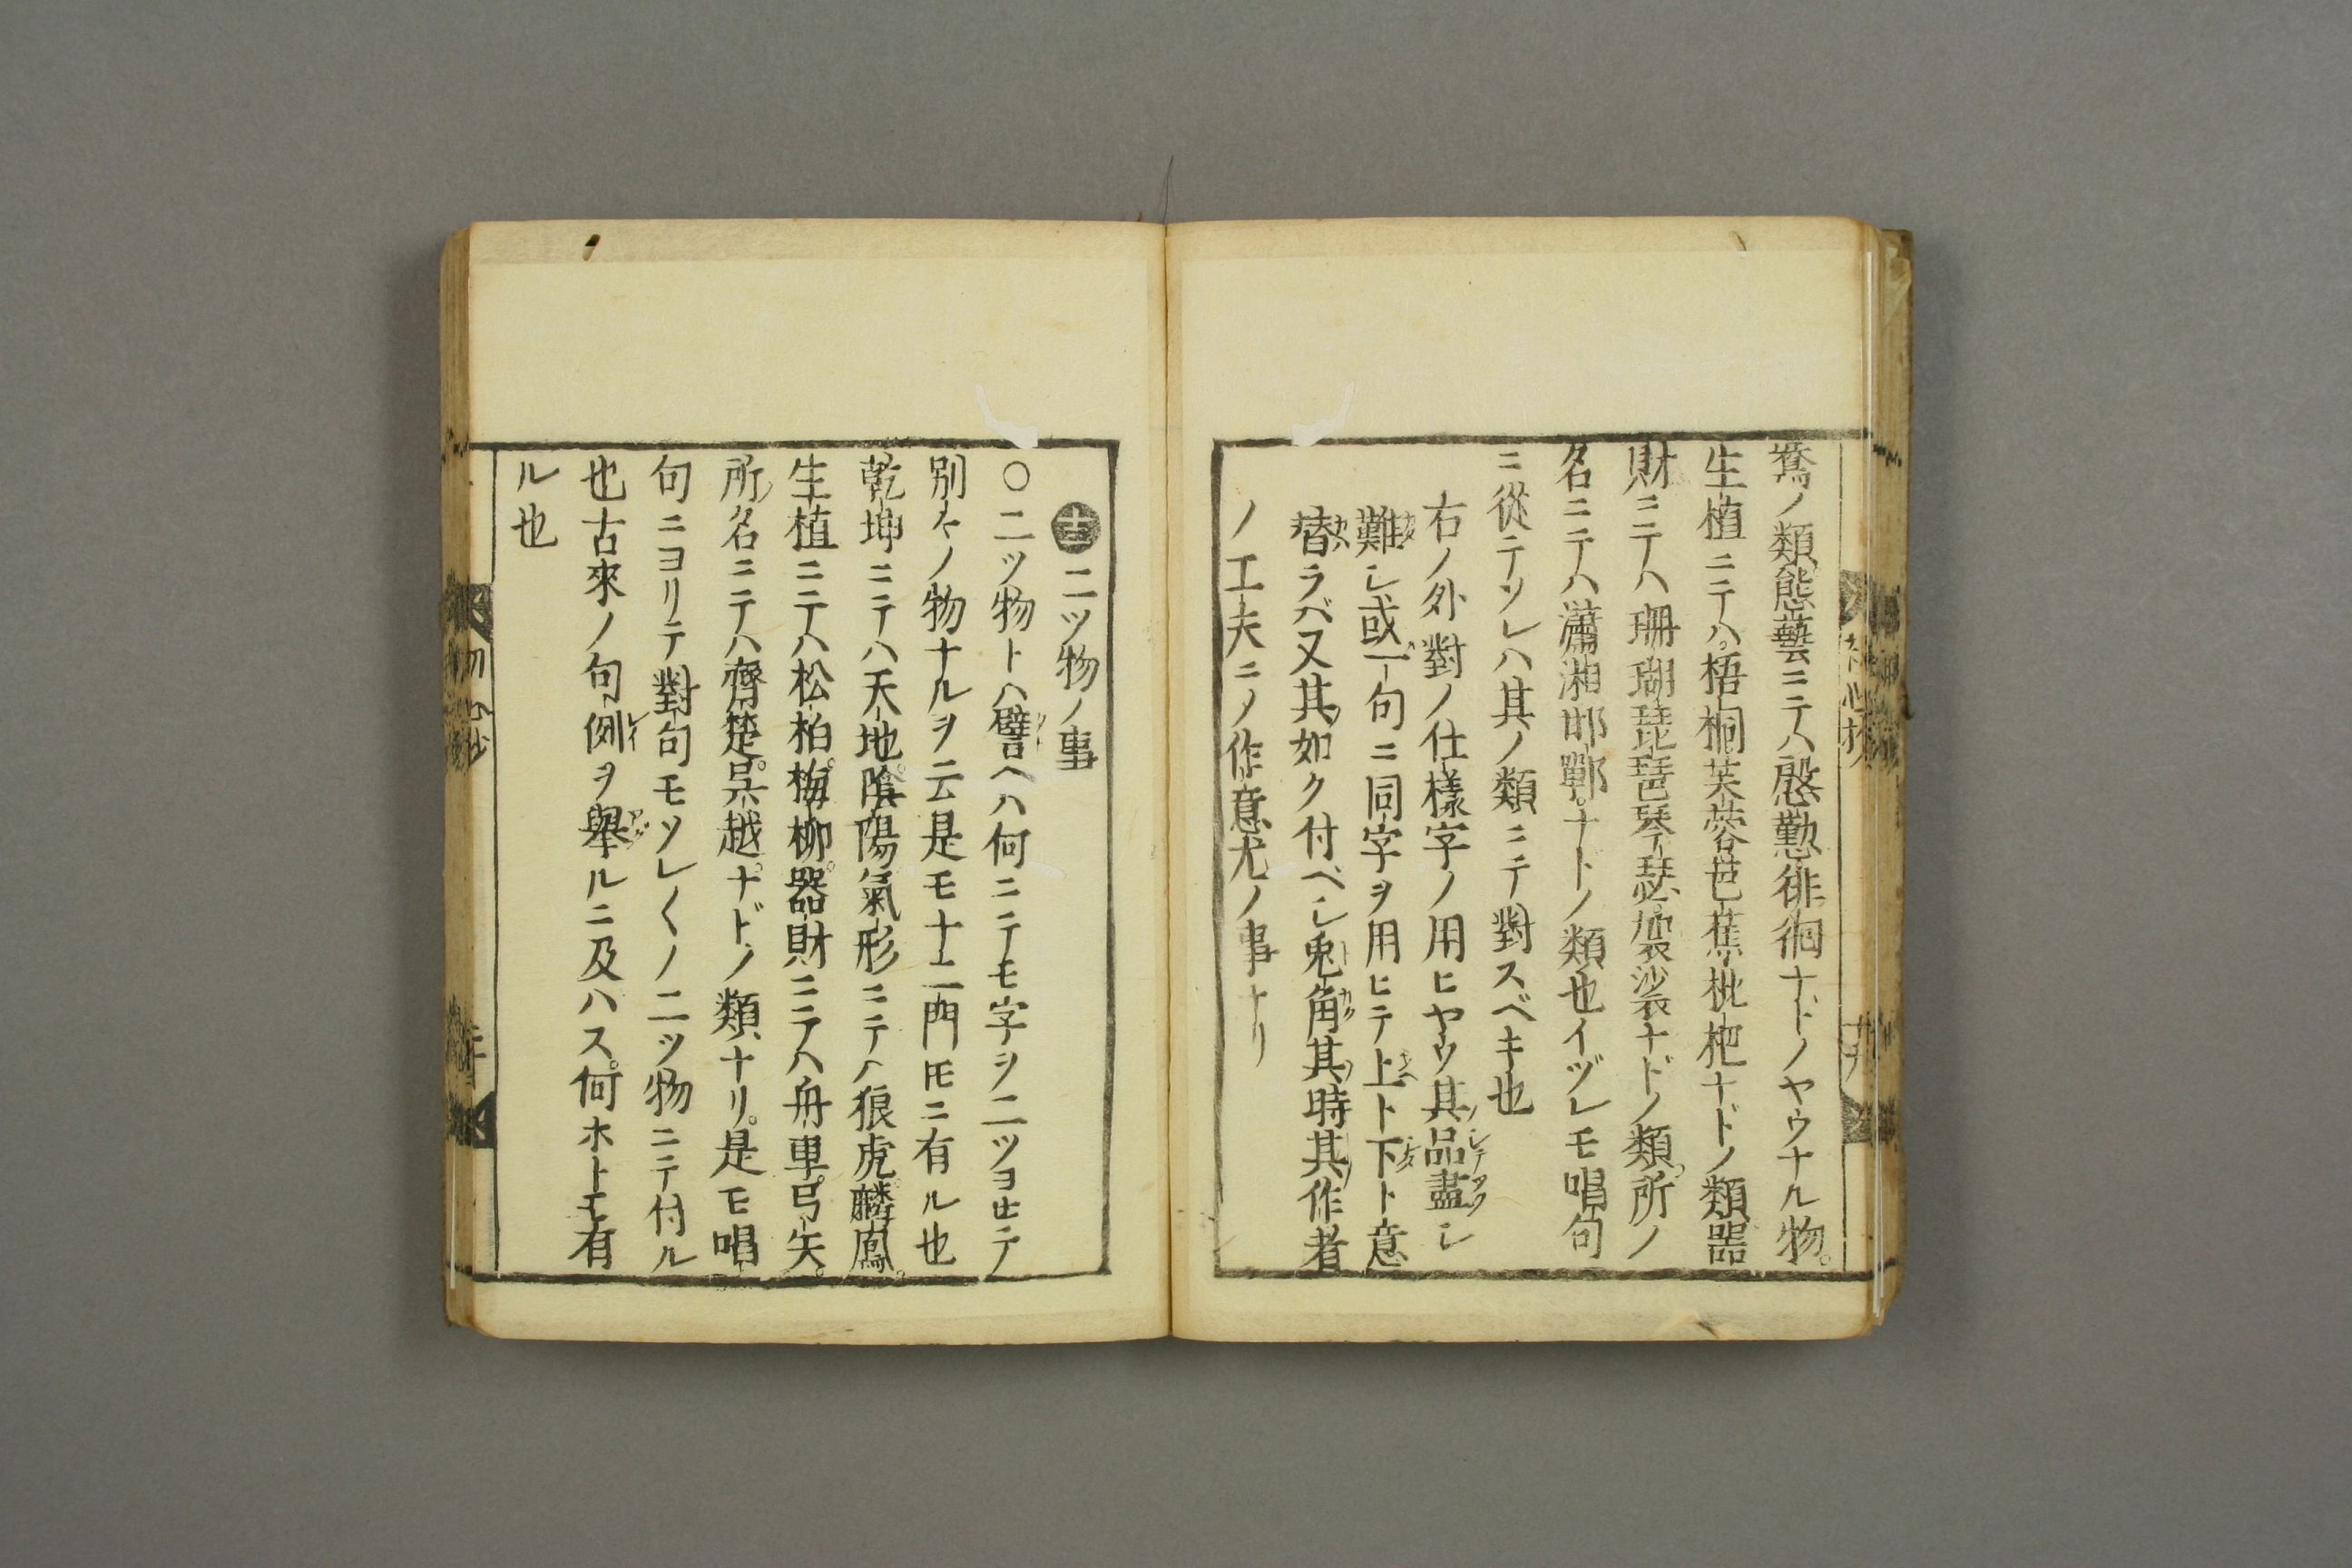 鴦ノ類態藝ニテハ慇懃徘徊ナドノヤウナル物。
生植ニテハ。梧桐芙蓉芭蕉枇杷ナドノ類器
財ニテハ珊瑚琵琶琴瑟。袈裟ナドノ類。所ノ
名ニテハ瀟湘邯鄲。ナトノ類也イヅレモ唱句
ニ從テソレハ其ノ類ニテ對スベキ也
右ノ外對ノ仕樣字ノ用ヒヤウ其ノ品盡シ
難シ或ハ一句ニ同字ヲ用ヒテ上ト下ト意
替ラバ又其ノ如ク付ベシ兎角其ノ時其ノ作者
ノ工夫ニノ作意尤ノ事ナリ
二ツ物ノ事
〇二ツ物トハ譬ヘハ何ニテモ字ヲ二ツヨセテ
別々ノ物ナルヲ云是モ十二門𪜈ニ有ル也
乾坤ニテハ天地。陰陽氣形ニテハ狼虎。麟鳳。
生植ニテハ松柏。梅柳。器財ニテハ舟車。弓矢。
所ノ名ニテハ齊楚。呉越。ナドノ類ナリ。是モ唱
句ニヨリテ對句モソレ〱ノ二ツ物ニテ付ル
也古來ノ句例ヲ舉ルニ及ハス。何ホトモ有
ル也